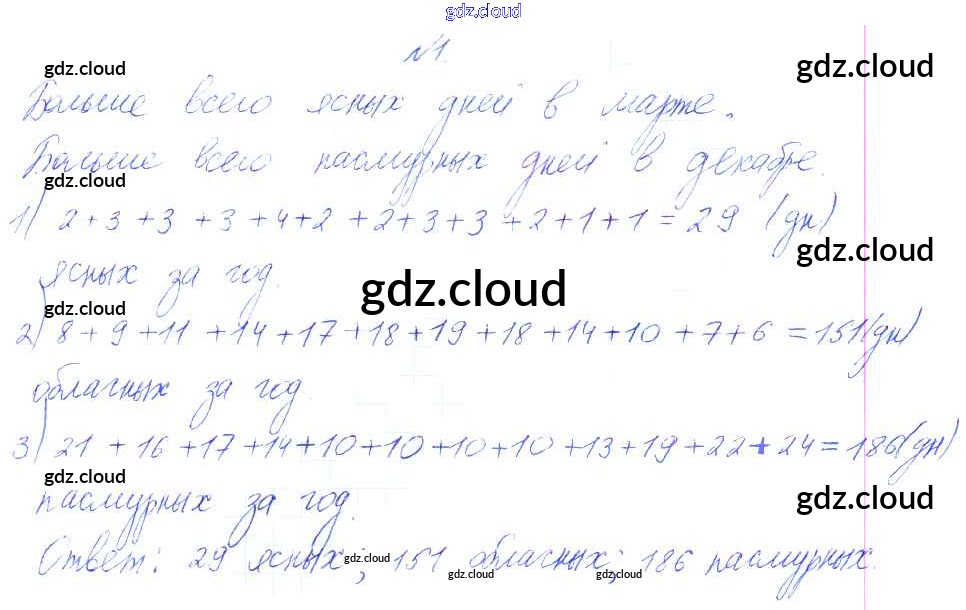 gdz.cloud
№1.
gdz.cloud
gdz.cloud
Больше всего ясных дней в марте.
Больше всего пасмурных дней в декабре.
gdz.cloud
1) 2+3+3+3+4+2+2+3+3+2+1+1=29 (дн)
gdz.cloud
ясных за год.
gdz.cloud
gdz.cloud
2) 8+9+11+14+17+18+19+18+14+10+7+6=151(дн)
облачных за год.
gdz.cloud
3) 21+16+17+14+10+10+10+10+13+19+22+24=186(дн)
пасмурных за год.
gdz.cloud
Ответ: 29 ясных; 151 облачных; 186 пасмурных.
gdz.cloud
gdz.cloud
gdz.cloud